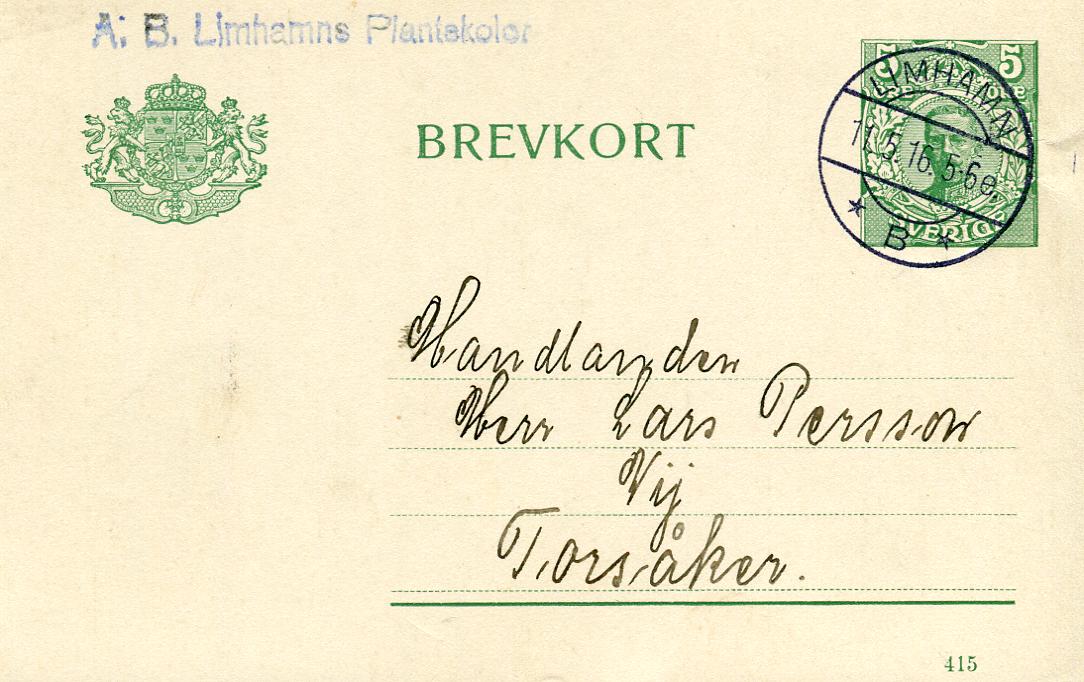 A. B. Limhamns Plantskolor
BREVKORT
5 5
LIMHAMN
11.5.16.5-6e.
* B *
SVERIGE
Handlanden
Herr Lars Persson
Vij
Torsåker.
415